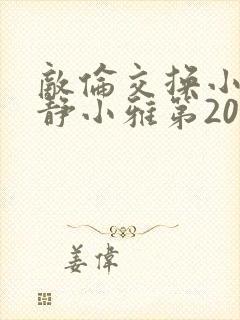 敵倫交換小
靜小雅第20
姜偉